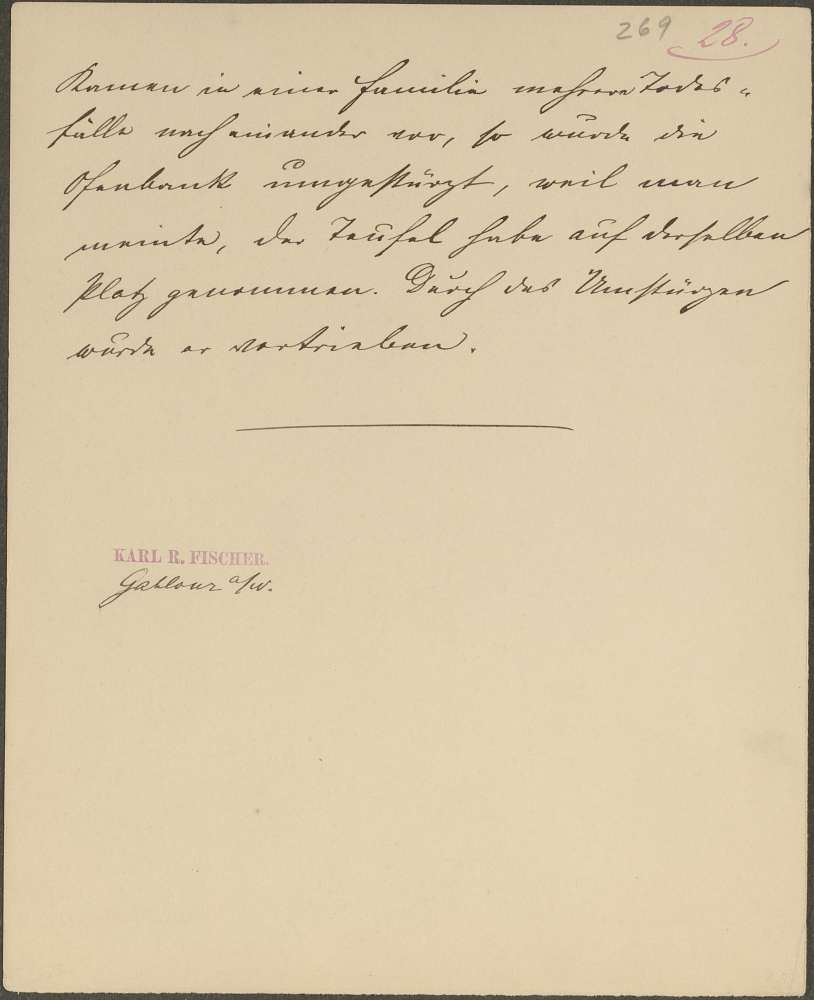 269 28.
Kamen in einer Familie mehrere Todes-
fälle nach einander vor, so wurde die
Ofenbank umgestürzt, weil man
meinte, der Teufel habe auf derselben
Platz genommen. Durch das Umstürzen
wurde er vertrieben.
KARL R. FISCHER.
Gablonz a/N.